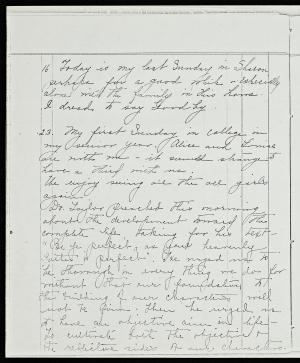 16 Today is my last Sunday in Sharon
perhaps for a good while - especially
alone with the family in this home.
I dread to say Good by.
23. My first Sunday in college in
my senior year. Alice and Louise
are with me - it seems strange to
have a third with us.
We enjoy seeing all the old girls
again.
Dr. Taylor preached this morning
about the development toward the
complete life taking for his text
"Be ye perfect, as your heavenly
Father is perfect". He urged us to
be thorough in every thing we do for
without that our foundation to
the building of our characters will
not be firm; then he urged us
to have an objective aim in life
to cultivate both the objective &
the reflective sides to our character.